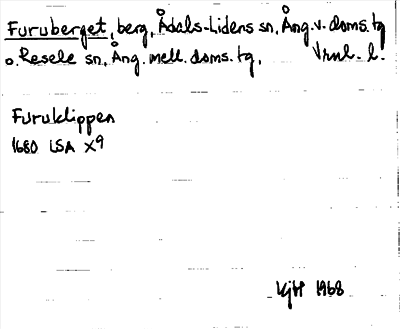 Furuberget, berg, Ådals-Lidens sn, Ång. v. doms. tg
o. Resele sn, Ång. mell. doms. tg, Vrnl. l.
Furuklippen
1680 LSA X9
KjH 1968